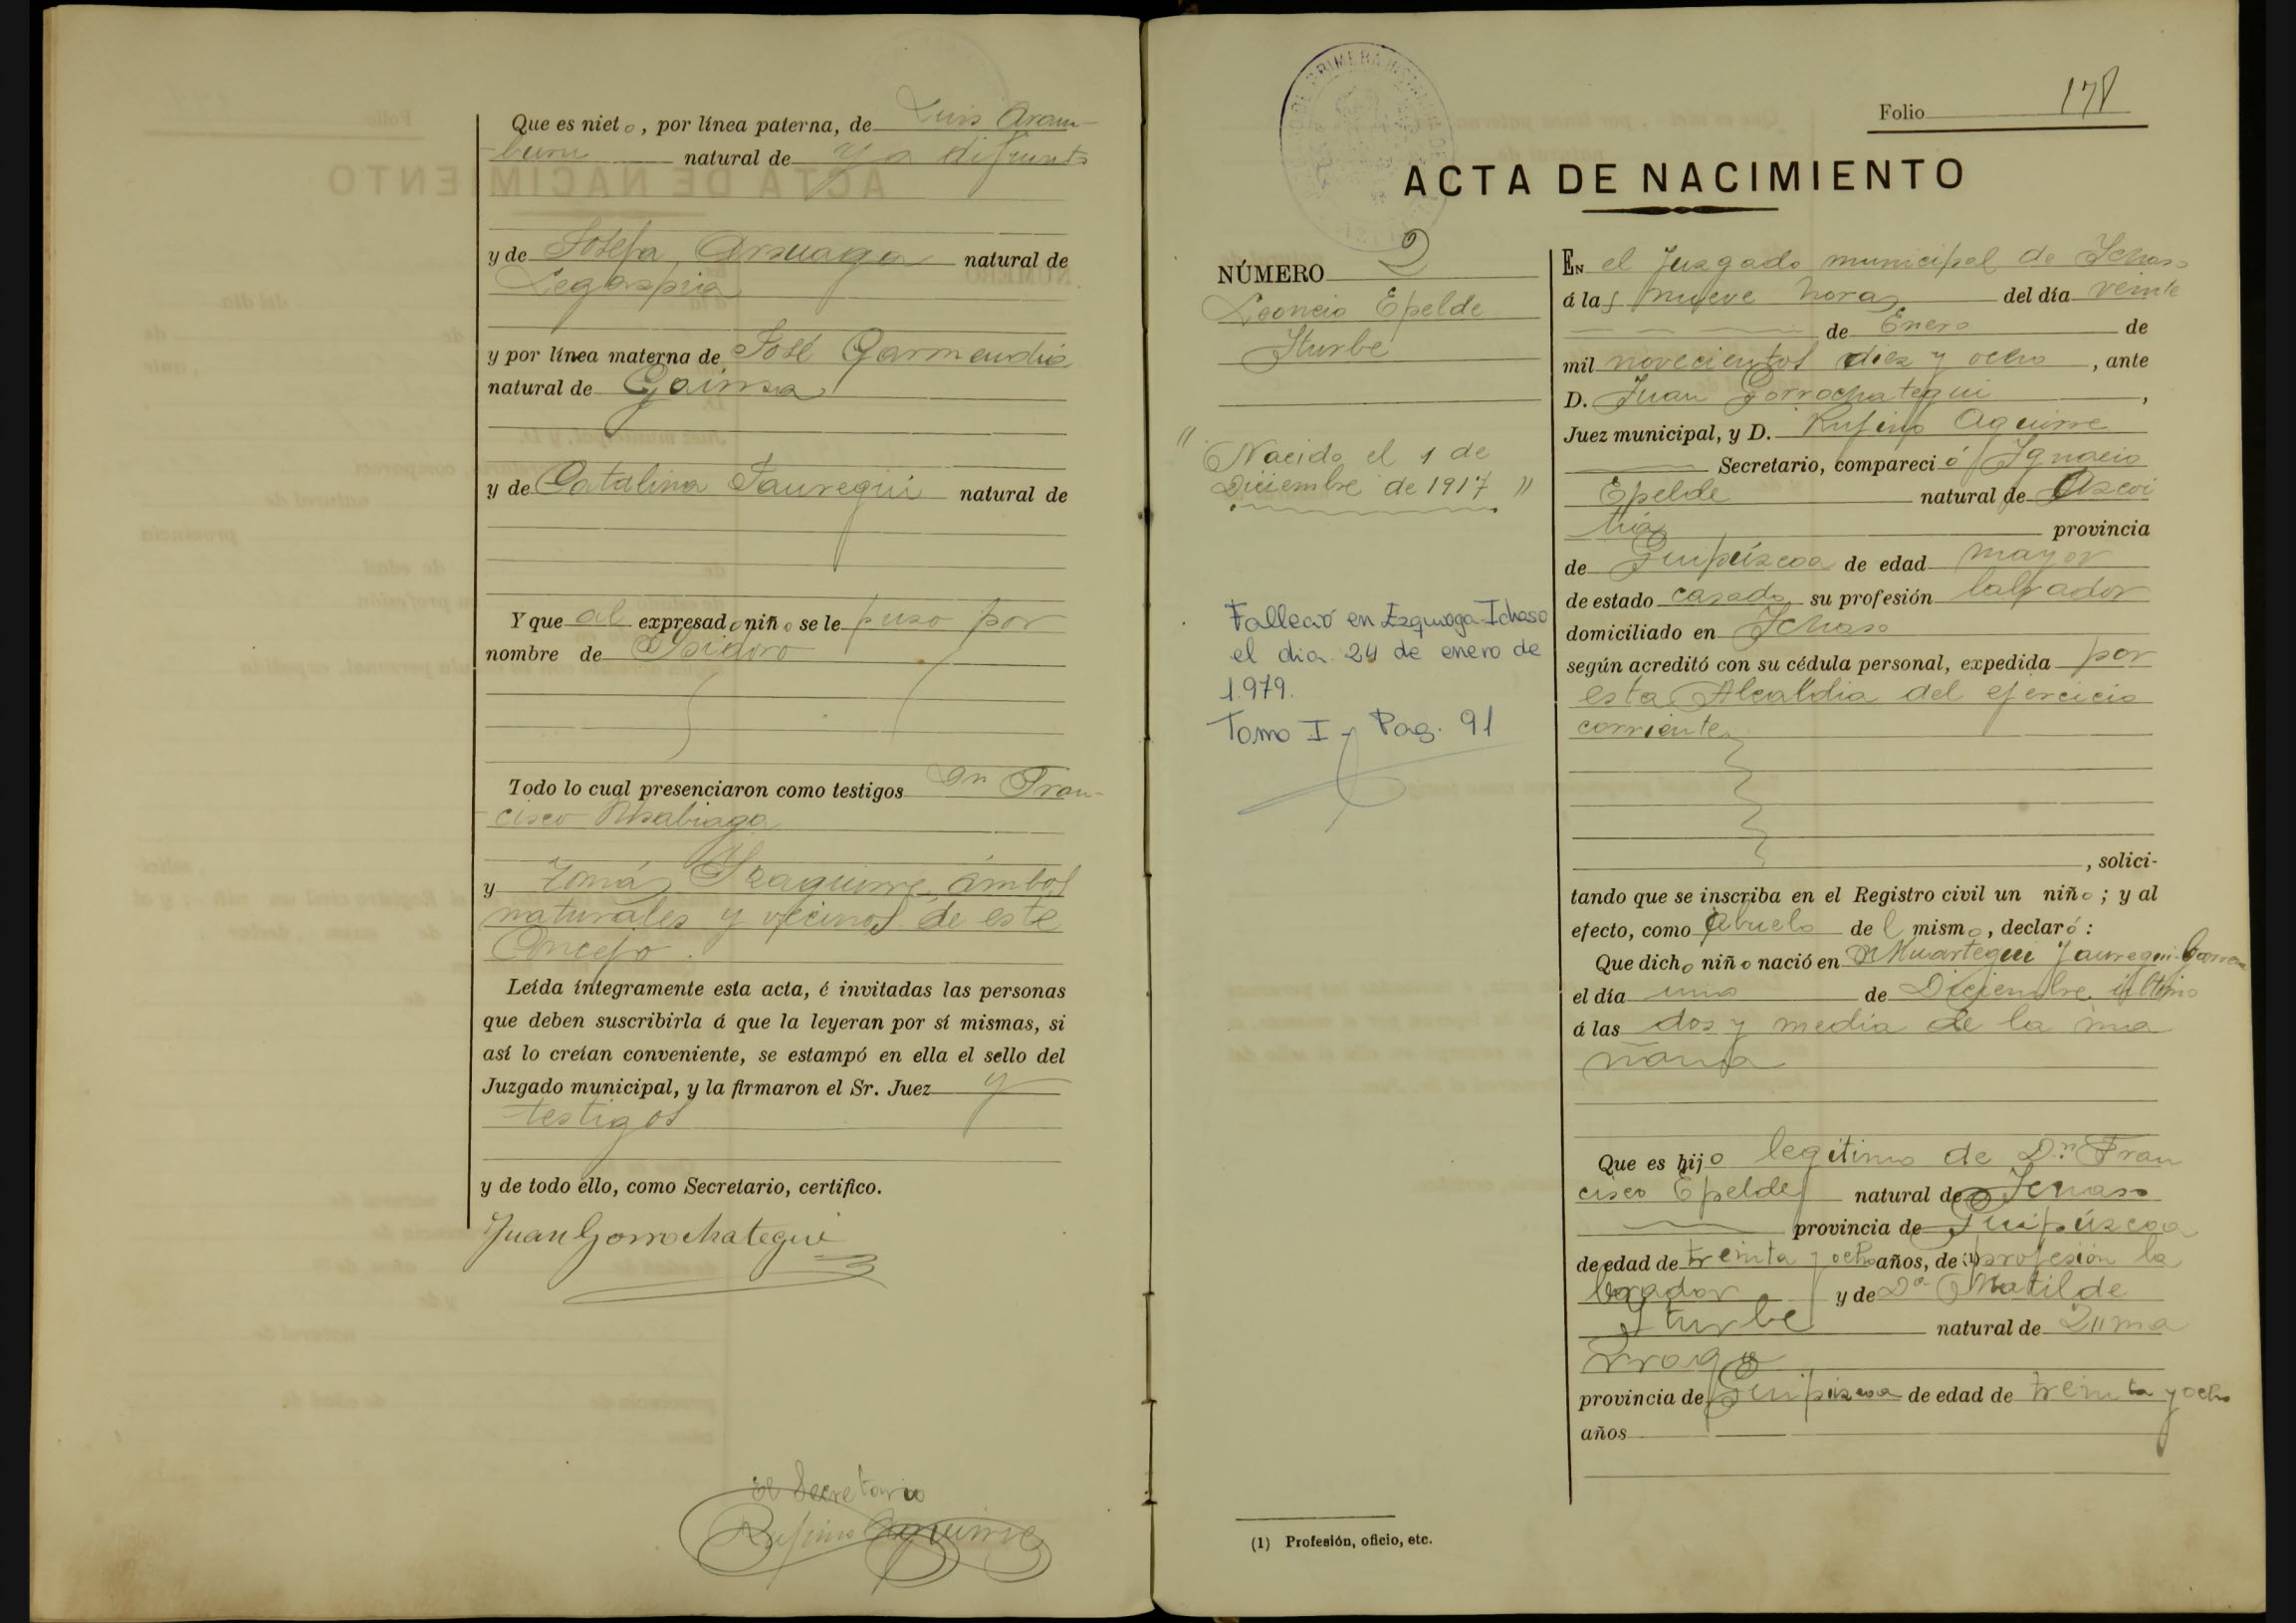 Que es nieto, por línea paterna, de Luis Aram-
buru natural de ya difunto
y de Josefa Arsuaga natural de
Legaspia
y por línea materna de José Garmendia
natural de Gainza
y de Catalina Jauregui natural de
Y que al expresado niño se le puso por
nombre de Isidoro
Todo lo cual presenciaron como testigos Dn Fran-
cisco
y Tomás Izaguirre ámbos
naturales y vecinos de este
Concejo.
Leída íntegramente esta acta, é invitadas las personas
que deben suscribirla á que la leyeran por sí mismas, si
así lo creían conveniente, se estampó en ella el sello del
Juzgado municipal, y la firmaron el Sr. Juez y
testigos
y de todo ello, como Secretario, certifico.
Juan Gorrochategui
El Secretario
Rufino Aguirre
Folio 178
ACTA DE NACIMIENTO
NÚMERO 2
Leoncio Epelde
Iturbe
"Nacido el 1 de
Diciembre de 1917"
Falleció en Ezquioga-Ichaso
el dia 24 de enero de
1.979.
Tomo I - Pag. 91
EN el Juzgado municipal de Ichaso
á las nueve horas del día veinte
de Enero de
mil novecientos diez y ocho, ante
D. Juan Gorrochategui,
Juez municipal, y D. Rufino Aguirre
Secretario, compareció Ignacio
Epelde natural de Azcoi
tia provincia
de Guipúzcoa de edad mayor
de estado casado su profesión labrador
domiciliado en Ichaso
según acreditó con su cédula personal, expedida por
esta Alcaldia del ejercicio
corriente
, solici-
tando que se inscriba en el Registro civil un niño; y al
efecto, como abuelo del mismo, declaró:
Que dicho niño nació en Jauregui
el día uno de Diciembre último
á las dos y media de la ma
ñana
Que es hijo legitimo de Dn Fran
cisco Epelde natural de Ichaso
provincia de Guipúzcoa
de edad de treinta y ocho años, de (1) profesión la
brador y de Dª Matilde
Iturbe natural de Zuma
rraga
provincia de Guipúzcoa de edad de treinta y ocho
años
(1) Profesión, oficio, etc.